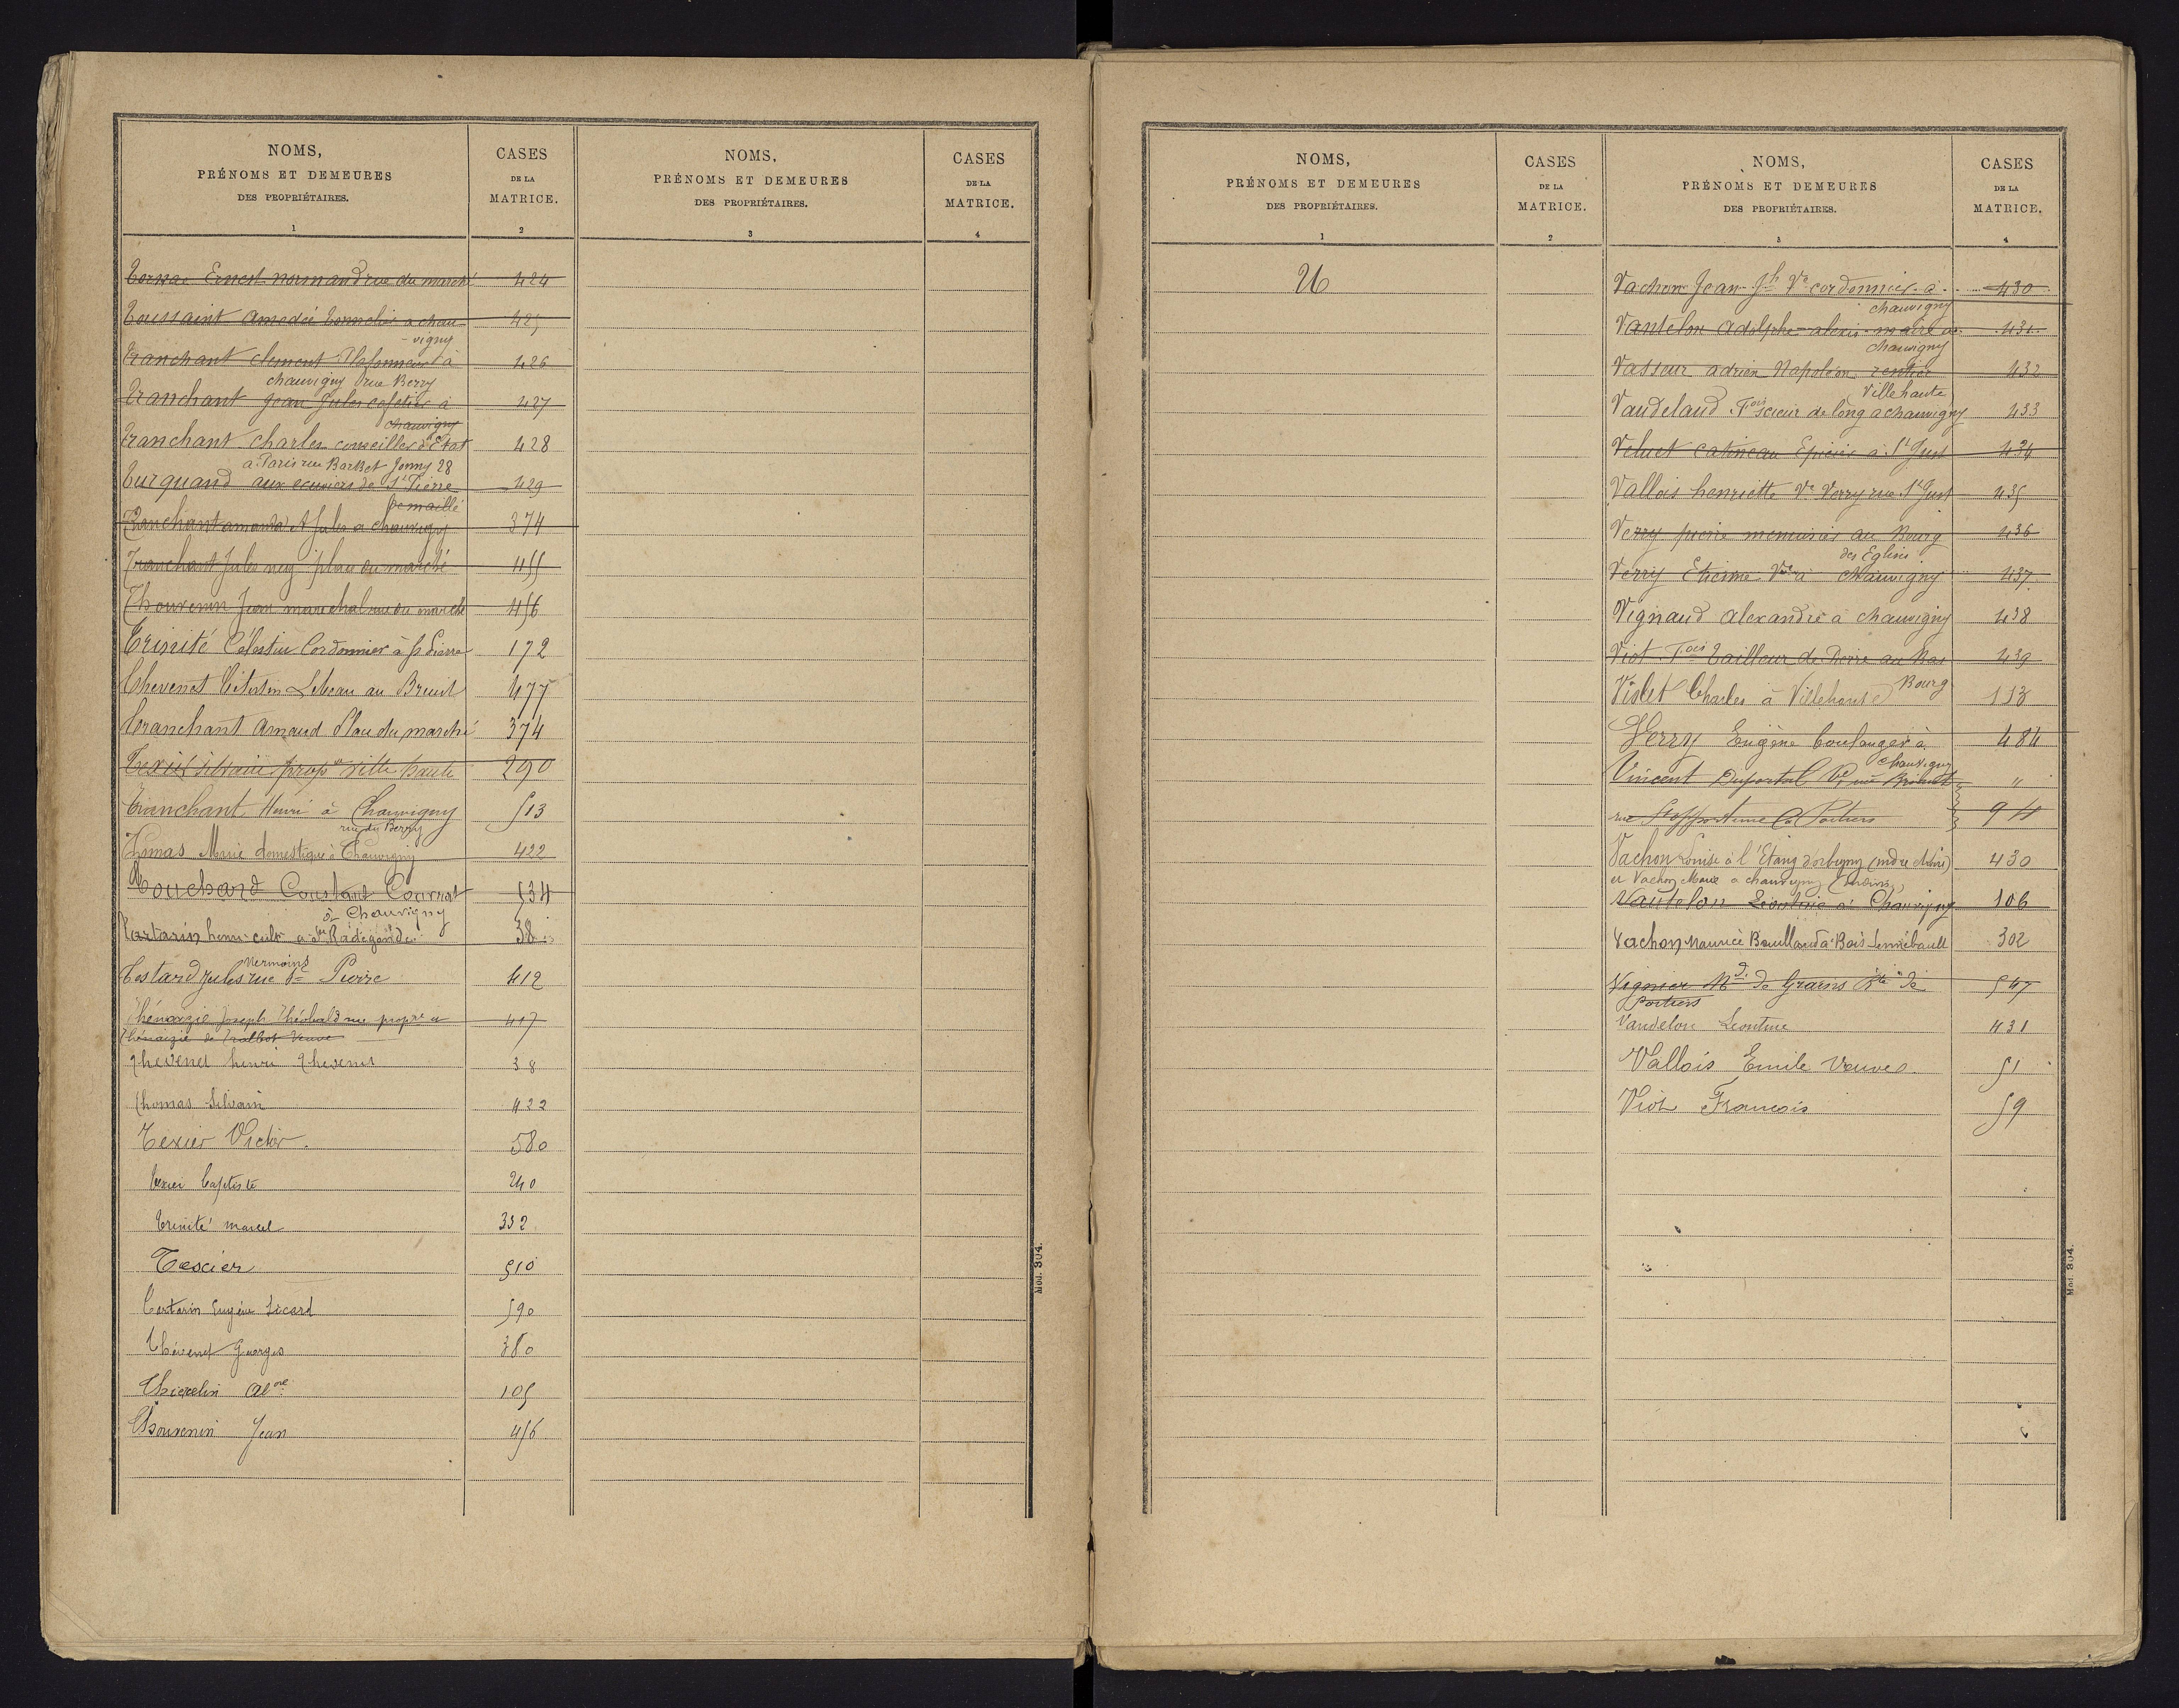 NOMS,
PRÉNOMS ET DEMEURES
DES PROPRIÉTAIRES.
1
CASES
DE LA
MATRICE.
2
NOMS,
PRÉNOMS ET DEMEURES
DES PROPRIÉTAIRES.
3
CASES
DE LA
MATRICE.
4
Ernest normand rue du marché 424
Toussaint Amedée Tonnelier a chau 425
-vigny
Tranchant clement à 426
chauvigny rue Berry
Tranchant Jean Jules cafetier à 427
chauvigny
Tranchant Charles conseiller d'Etat 428
a Paris rue Barbet Jouy 28
Turquand aux ecuviers de St Pierre 429
de maillé
Tranchant amanda & Jules a chauvigny 374
Tranchant Jules place du marché 455
Thouvenin Jean marechal rue du marché 456
Trinité Célestin Cordonnier à St Pierre 172
Thevenet au Breuil 477
Tranchant Amaud Place du marché 374
Texier Silvain propre ville haute 290
Tranchant Henri à Chauvigny 513
rue du Berry
Thomas Marie domestique à Chauvigny 422
Touchard Constant 534
à Chauvigny
Tartarin henri cult a Ste Radegonde 38
Testard Jules rue St Pierre 412
Thénaizie Joseph Théobald propre et 417
Thénaizie de Veuve
Thevenet henri Thevenet 38
Thomas Silvain 422
Texier Victor. 580
Texier Baptiste 240
Trinité marcel 332
Texcier 510
Tartarin Eugène Sicard 590
Thévenet Georges 380
Thiezelin 105
Thouvenin Jean 456
Mod. 304.
NOMS,
PRÉNOMS ET DEMEURES
DES PROPRIÉTAIRES.
1
CASES
DE LA
MATRICE.
2
NOMS,
PRÉNOMS ET DEMEURES
DES PROPRIÉTAIRES.
3
CASES
DE LA
MATRICE.
4
U
Vachon Jean Jh Ve cordonnier à 430
chauvigny
Vantelon Adolphe alexis maire a 431
chauvigny
Vasseur adrien Napoléon rentier 432
Ville haute
Vaudelaud Fois scieur de long a chauvigny 433
Veluet catineau Epicier à St Just 434
Vallois henriette Ve Verry rue St Just 435
Verry pierre menuisier au Bourg 436
des Eglises
Verry Etienne Ve à chauvigny 437
Vignaud Alexandre à chauvigny 438
Viot Fois Tailleur de Pierre au Bas 439
Bourg
Violet Charles à Villehaute 113
Verry Eugène boulanger à 484
Chauvigny
Vincent Duportal Ve née "
rue à Poitiers 94
Vachon Louise à l'Etang (Indre et Loire) 430
et Vachon Marie a chauvigny
Vantelon Leontine à Chauvigny 106
Vachon Maurice Baullard à Bois Sennebault 302
Vignier Md de Grains Rte de 547
Poitiers
Vandelon Leontine 431
Vallois Emile Veuve 51
Viot François 59
Mod. 304.